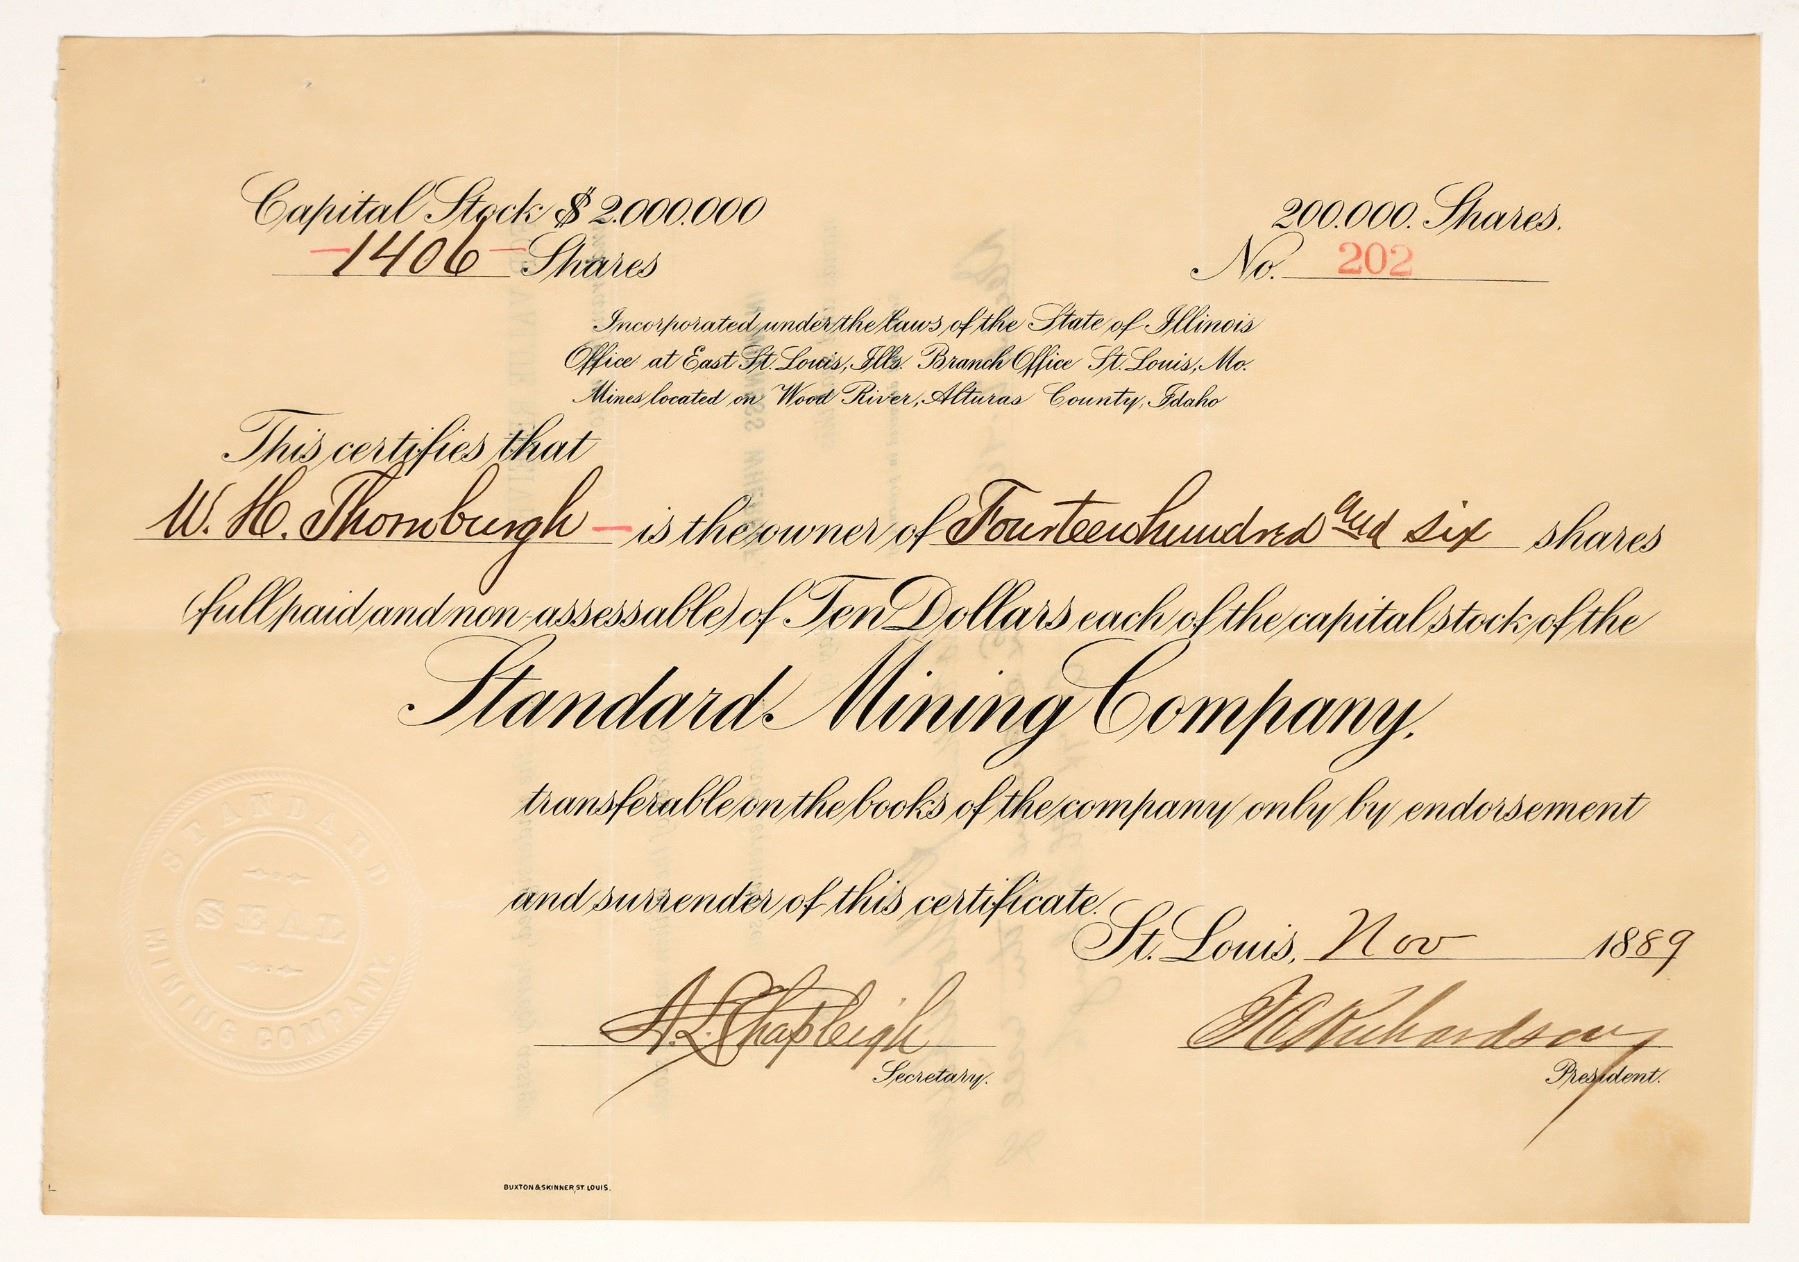 Capital Stock $2.000.000
200.000. Shares.
-1406- Shares
No. 202
Incorporated under the laws of the State of Illinois
Office at East St. Louis, Ills. Branch Office St. Louis, Mo.
Mines located on Wood River, Alturas County, Idaho
This certifies that
W. H. Thornburgh - is the owner of Fourteen hundred and six shares
(full paid and non-assessable) of Ten Dollars each of the capital stock of the
Standard Mining Company.
transferable on the books of the company only by endorsement
and surrender of this certificate.
St. Louis, Nov 1889
A. L. Shapleigh
Secretary.
Richardson
President.
STANDARD
SEAL
MINING COMPANY.
BUXTON & SKINNER, ST. LOUIS.